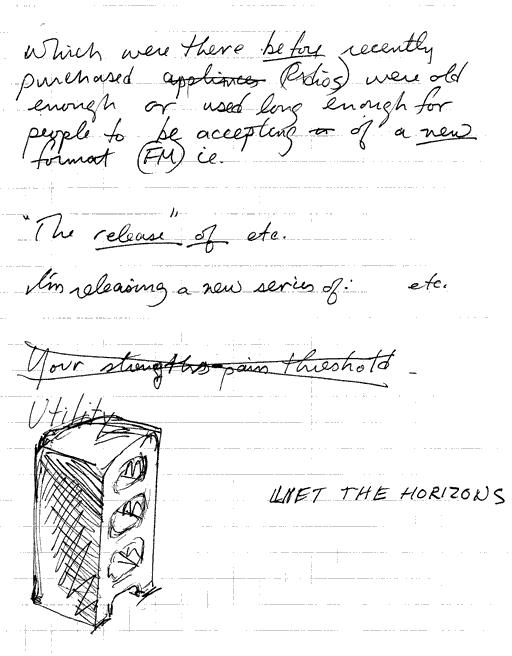 which were there before recently
purchased appliances (Radios) were old
enough or used long enough for
people to be accepting of a new
format (FM) ie.
"The release" of etc.
I'm releasing a new series of: etc.
Your strengths pain threshold
Utility
THE HORIZONS